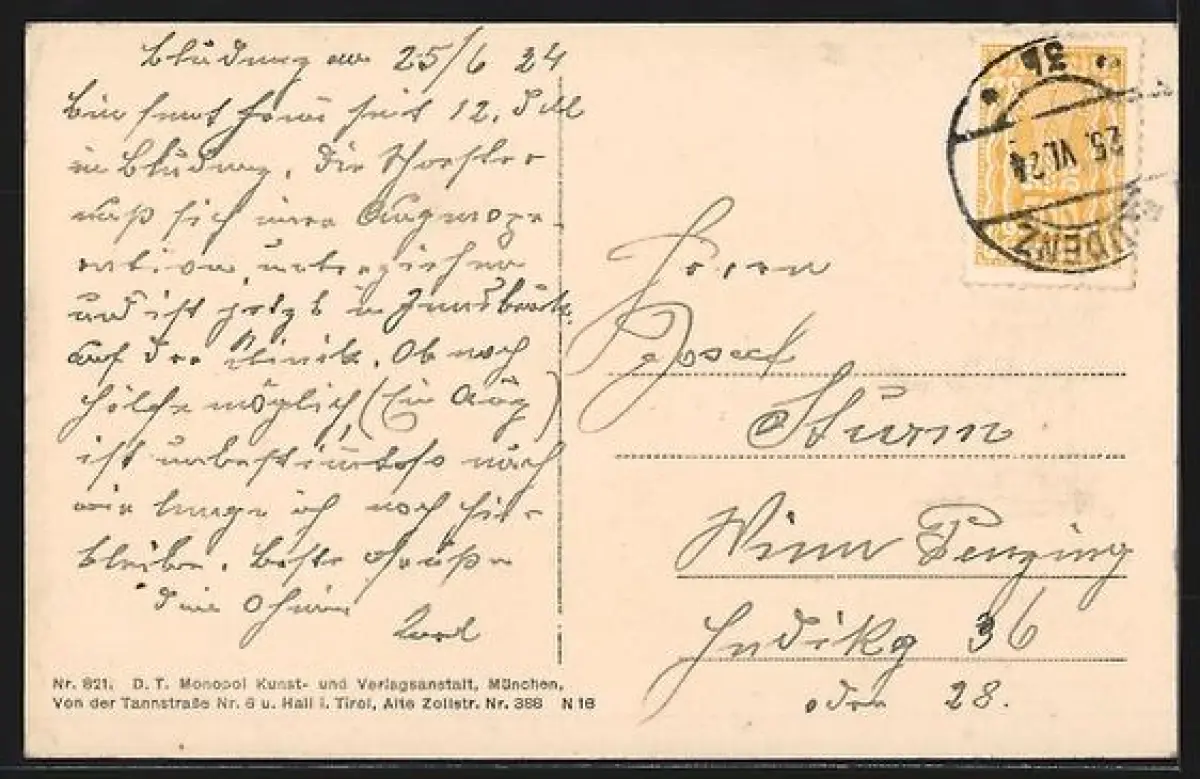 Bludenz am 25/6 24
Bin samt seit 12.
in Bludenz. Die Schwester
muß sich einer Augenope-
ration unterziehen
und ist jetzt in Innsbruck
auf der Klinik. Ob noch
Hilfe möglich, (Ein Aug)
ist unbestimmt, so auch
wie lange ich noch hier
bleibe. Beste Grüße
Dein Oheim
Karl
Herrn
Josef
Sturm
Wien Penzing
36
oder 28.
3b
25. VI. 24
BLUDENZ
Nr. 821. D. T. Monopol Kunst- und Verlagsanstalt, München,
Von der Tannstraße Nr. 6 u. Hall i. Tirol, Alte Zollstr. Nr. 388 N 16